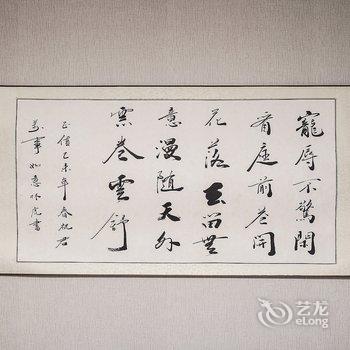 寵辱不驚閑
看庭前花開
花落去留無
意漫随天外
雲卷雲舒
值乙未年春祝君
萬事如意書
艺龙
eLong